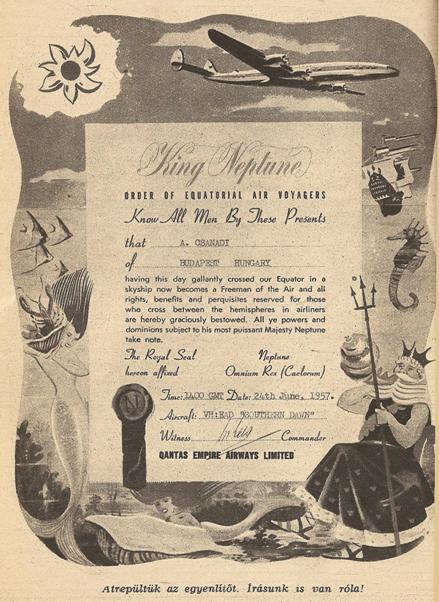 King Neptune
ORDER OF EQUATORIAL AIR VOYAGERS
Know All Men By These Presents
that A. CSANADI
of BUDAPEST HUNGARY
having this day gallantly crossed our Equator in a
skyship now becomes a Freeman of the Air and all
rights, benefits and perquisites reserved for those
who cross between the hemispheres in airliners
are hereby graciously bestowed. All ye powers and
dominions subject to his most puissant Majesty Neptune
take note.
The Royal Seal Neptune
hereon affixed Omnium Rex (Caelorum)
N
Time: 1400 GMT Date: 24th June, 1957.
Aircraft: VH:EAD "SOUTHERN DAWN"
Witness Commander
QANTAS EMPIRE AIRWAYS LIMITED
Atrepültük az egyenlítőt. Írásunk is van róla!